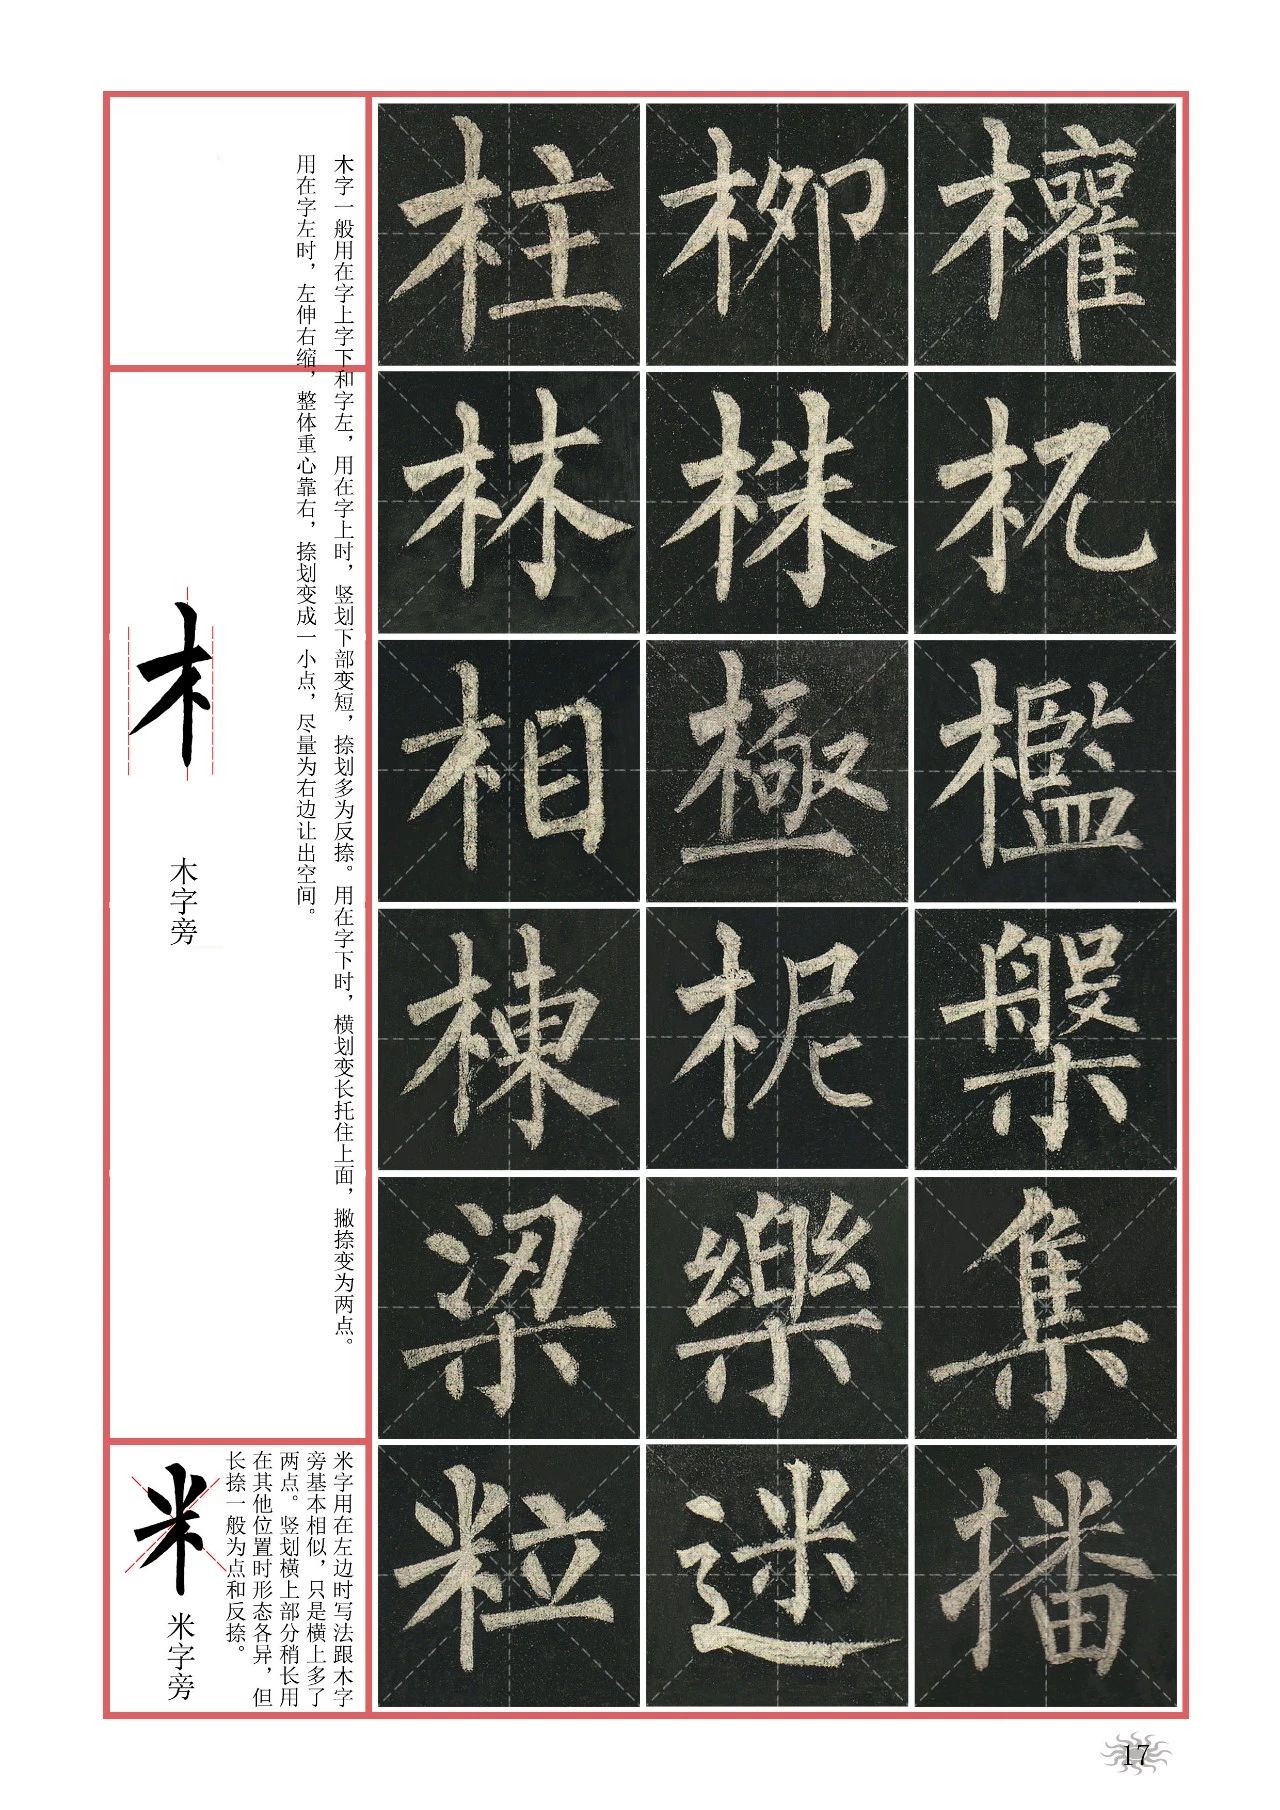 權机檻槃集播
柳株極柅樂迷
柱林相棟梁粒
木字一般用在字上字下和字左，用在字上时，竖划下部变短，捺划多为反捺。用在字下时，横划变长托住上面，撇捺变为两点。
用在字左时，左伸右缩，整体重心靠右，捺划变成一小点，尽量为右边让出空间。
木
木字旁
米字用在左边时写法跟木字
旁基本相似，只是横上多了
两点。竖划横上部分稍长用
在其他位置时形态各异，但
长捺一般为点和反捺。
米
米字旁
17